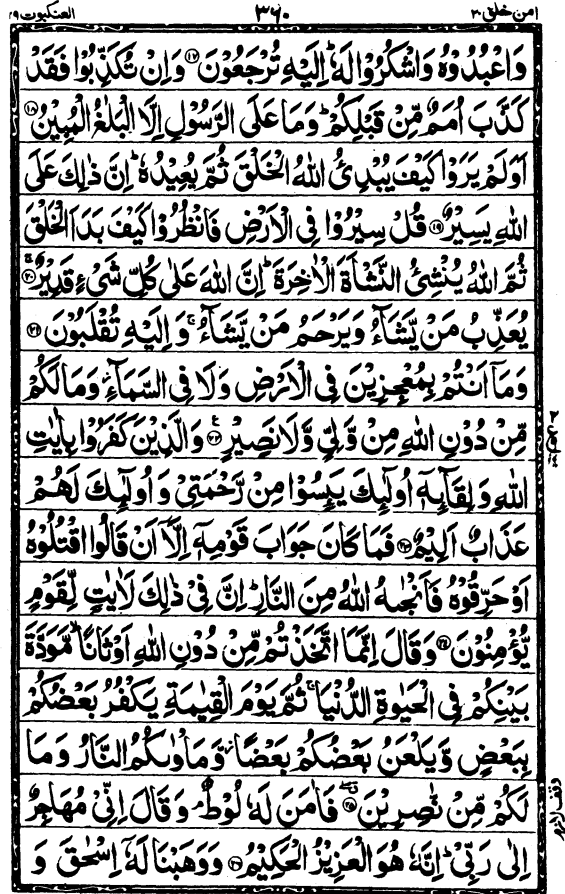 امن خلق ۲۰ ۳۶۰ العنكبوت ۲۹
وَاعْبُدُوْهُ وَاشْكُرُوْا لَهٗ ؕ اِلَيْهِ تُرْجَعُوْنَ ﴿۱۷﴾ وَاِنْ تُكَذِّبُوْا فَقَدْ
كَذَّبَ اُمَمٌ مِّنْ قَبْلِكُمْ ؕ وَمَا عَلَى الرَّسُوْلِ اِلَّا الْبَلٰغُ الْمُبِيْنُ ﴿۱۸﴾
اَوَلَمْ يَرَوْا كَيْفَ يُبْدِئُ اللّٰهُ الْخَلْقَ ثُمَّ يُعِيْدُهٗ ؕ اِنَّ ذٰلِكَ عَلَى
اللّٰهِ يَسِيْرٌ ﴿۱۹﴾ قُلْ سِيْرُوْا فِى الْاَرْضِ فَانْظُرُوْا كَيْفَ بَدَاَ الْخَلْقَ
ثُمَّ اللّٰهُ يُنْشِئُ النَّشْاَةَ الْاٰخِرَةَ ؕ اِنَّ اللّٰهَ عَلٰى كُلِّ شَىْءٍ قَدِيْرٌ ﴿۲۰﴾
يُعَذِّبُ مَنْ يَّشَآءُ وَيَرْحَمُ مَنْ يَّشَآءُ ۚ وَاِلَيْهِ تُقْلَبُوْنَ ﴿۲۱﴾
وَمَاۤ اَنْتُمْ بِمُعْجِزِيْنَ فِى الْاَرْضِ وَلَا فِى السَّمَآءِ ؗ وَمَا لَكُمْ
مِّنْ دُوْنِ اللّٰهِ مِنْ وَّلِىٍّ وَّلَا نَصِيْرٍ ﴿۲۲﴾ وَالَّذِيْنَ كَفَرُوْا بِاٰيٰتِ
اللّٰهِ وَلِقَآئِهٖۤ اُولٰٓئِكَ يَئِسُوْا مِنْ رَّحْمَتِىْ وَاُولٰٓئِكَ لَهُمْ
عَذَابٌ اَلِيْمٌ ﴿۲۳﴾ فَمَا كَانَ جَوَابَ قَوْمِهٖۤ اِلَّاۤ اَنْ قَالُوا اقْتُلُوْهُ
اَوْ حَرِّقُوْهُ فَاَنْجٰىهُ اللّٰهُ مِنَ النَّارِ ؕ اِنَّ فِىْ ذٰلِكَ لَاٰيٰتٍ لِّقَوْمٍ
يُّؤْمِنُوْنَ ﴿۲۴﴾ وَقَالَ اِنَّمَا اتَّخَذْتُمْ مِّنْ دُوْنِ اللّٰهِ اَوْثَانًا ۙ مَّوَدَّةَ
بَيْنِكُمْ فِى الْحَيٰوةِ الدُّنْيَا ۚ ثُمَّ يَوْمَ الْقِيٰمَةِ يَكْفُرُ بَعْضُكُمْ
بِبَعْضٍ وَّيَلْعَنُ بَعْضُكُمْ بَعْضًا ؗ وَّمَاْوٰىكُمُ النَّارُ وَمَا
لَكُمْ مِّنْ نّٰصِرِيْنَ ﴿۲۵﴾ فَاٰمَنَ لَهٗ لُوْطٌ ۘ وَقَالَ اِنِّىْ مُهَاجِرٌ
اِلٰى رَبِّىْ ؕ اِنَّهٗ هُوَ الْعَزِيْزُ الْحَكِيْمُ ﴿۲۶﴾ وَوَهَبْنَا لَهٗۤ اِسْحٰقَ وَ